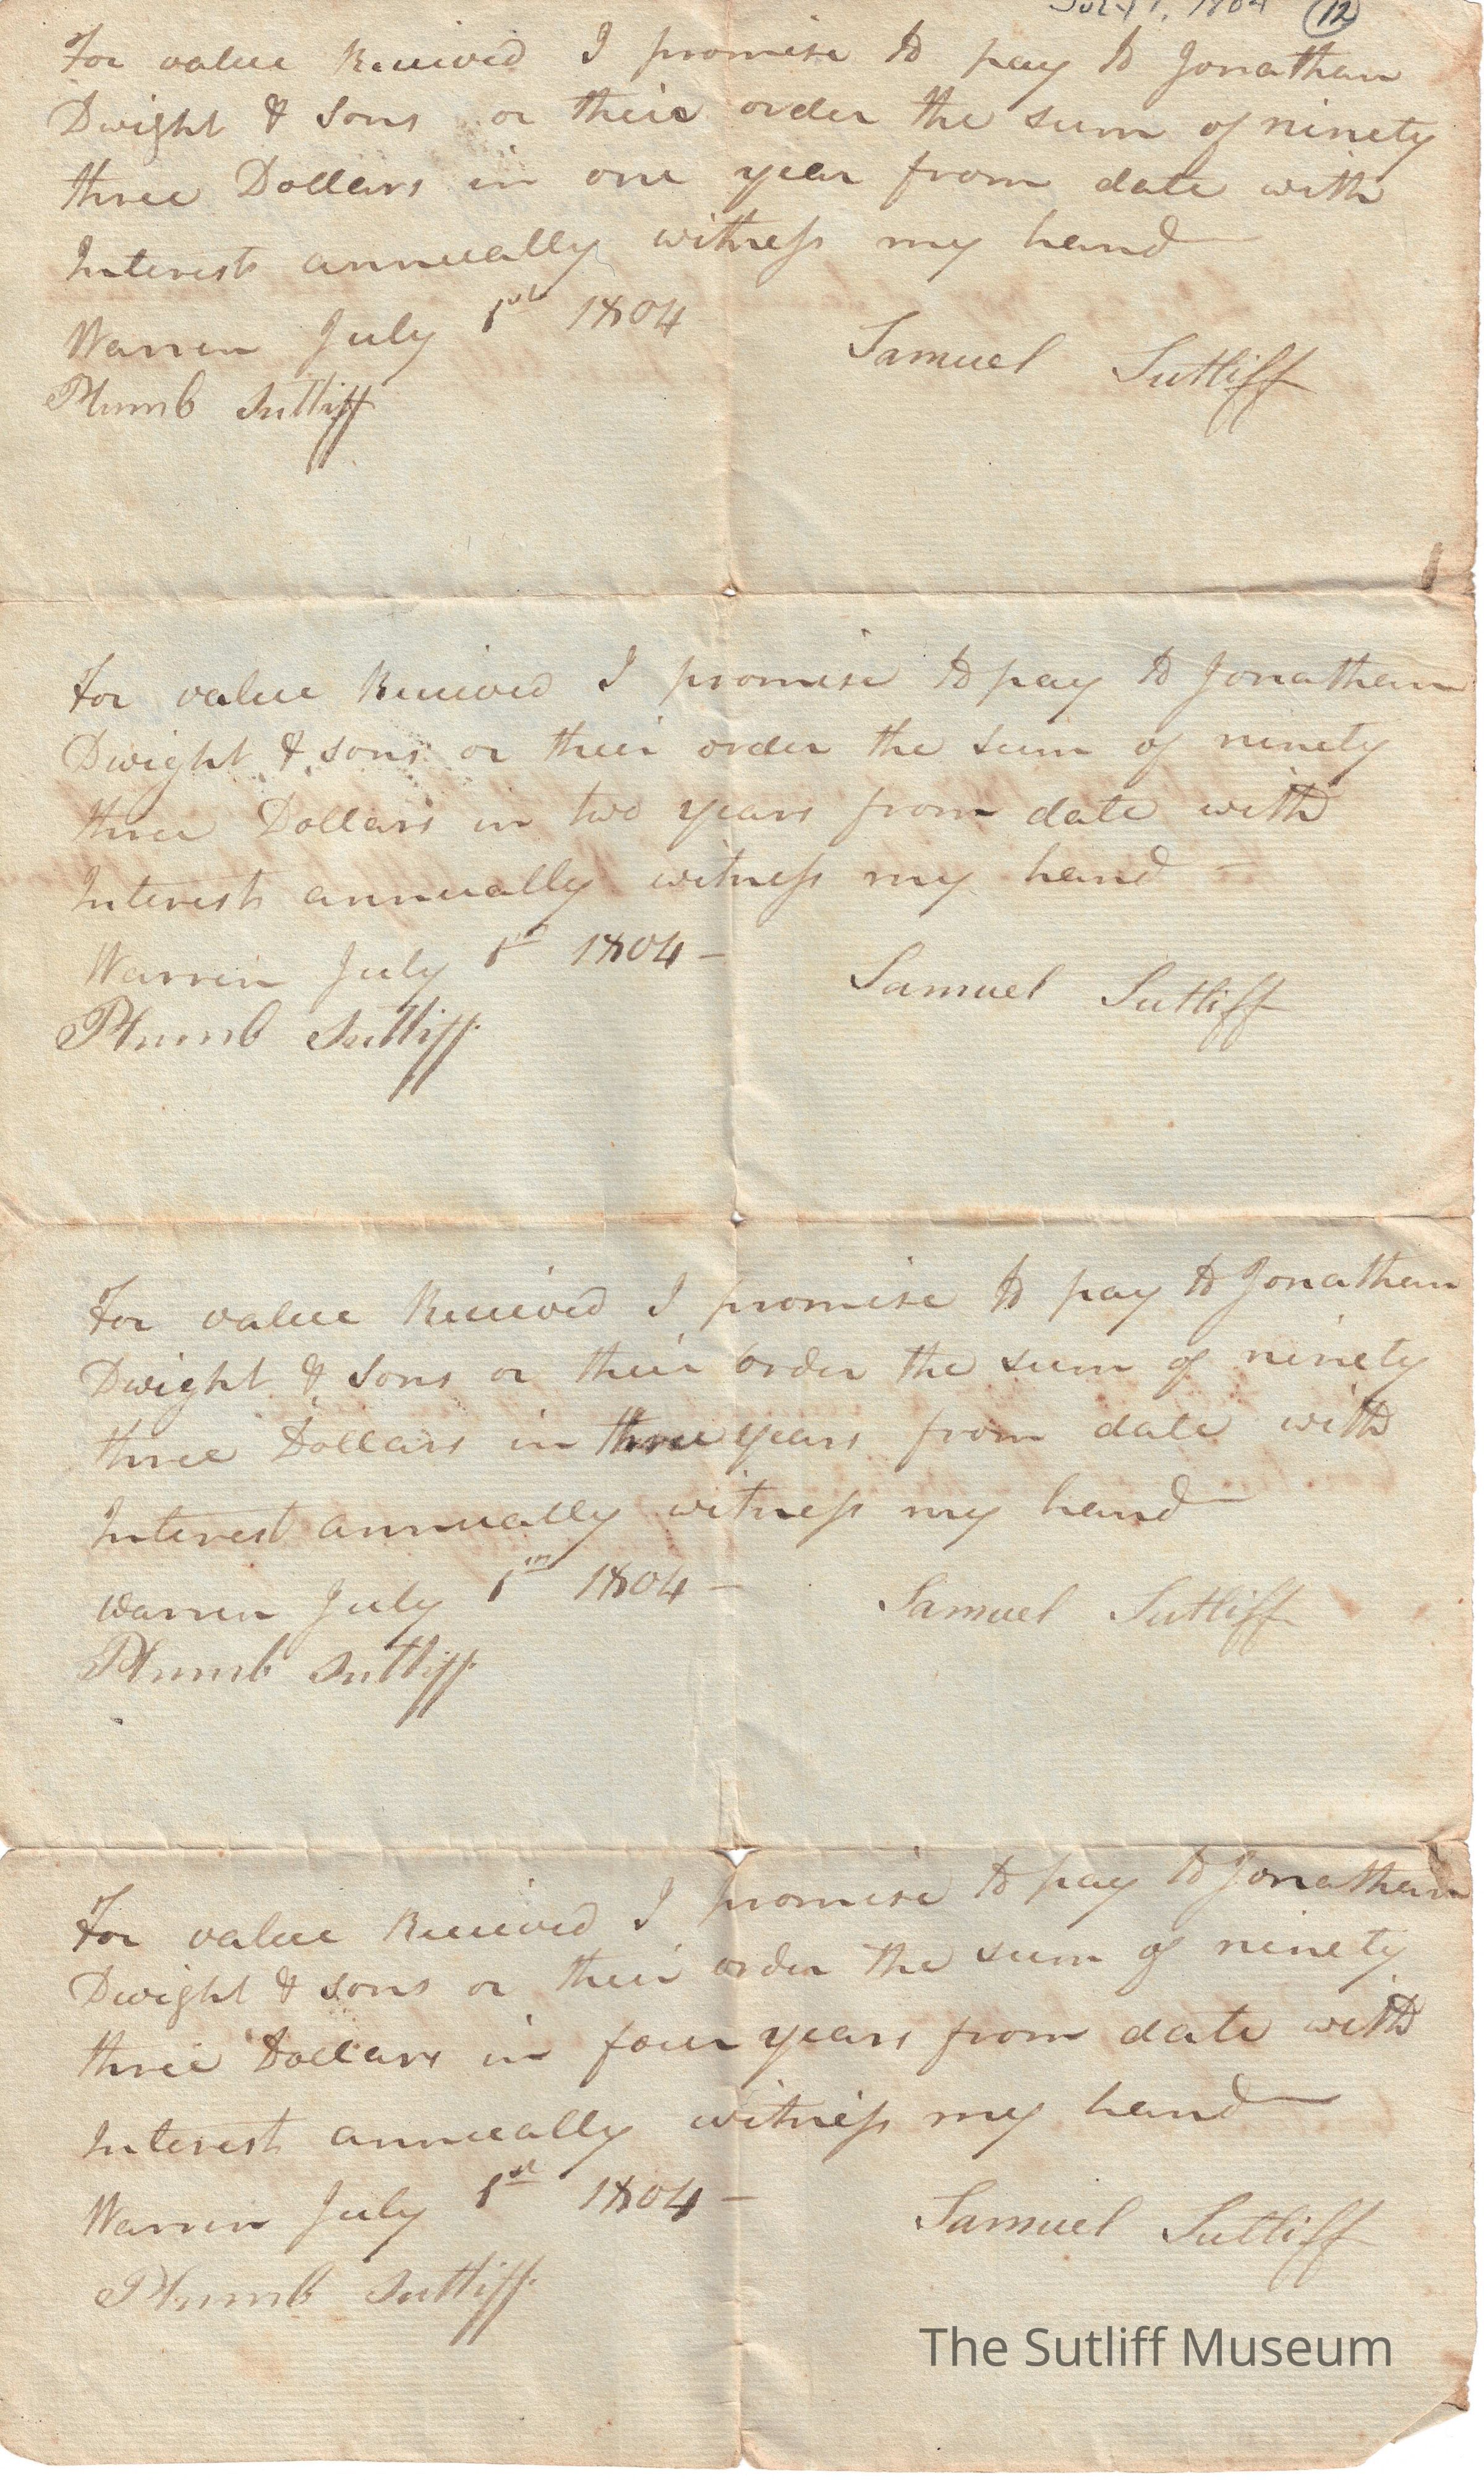 July 1, 1804 12
For value Received I promise to pay to Jonathan
Dwight & Sons or their order the sum of ninety
three Dollars in one year from date with
Interest annually witness my hand
Warren July 1st 1804
Samuel Sutliff
Plumb Sutliff
For value Received I promise to pay to Jonathan
Dwight & sons or their order the sum of ninety
three Dollars in two years from date with
Interest annually witness my hand –
Warren July 1st 1804 –
Samuel Sutliff
Plumb Sutliff
For value Received I promise to pay to Jonathan
Dwight & Sons or their order the sum of ninety
three Dollars in three years from date with
Interest annually witness my hand
Warren July 1st 1804 –
Samuel Sutliff
Plumb Sutliff
For value Received I promise to pay to Jonathan
Dwight & sons or their order the sum of ninety
three Dollars in four years from date with
Interest annually witness my hand
Warren July 1st 1804 –
Samuel Sutliff
Plumb Sutliff
The Sutliff Museum